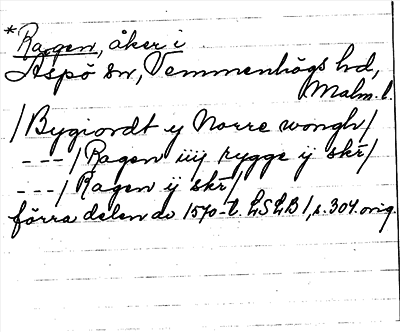 *Ragen, åker i
Äspö sn, Vemmenhögs hd,
Malm. l.
/Bygiordt y Norre wongh/
---/Ragen iiij rygge ij skr/
---/Ragen ij skr/
förra delen av 1570-t. LSLB 1, s. 304. orig.